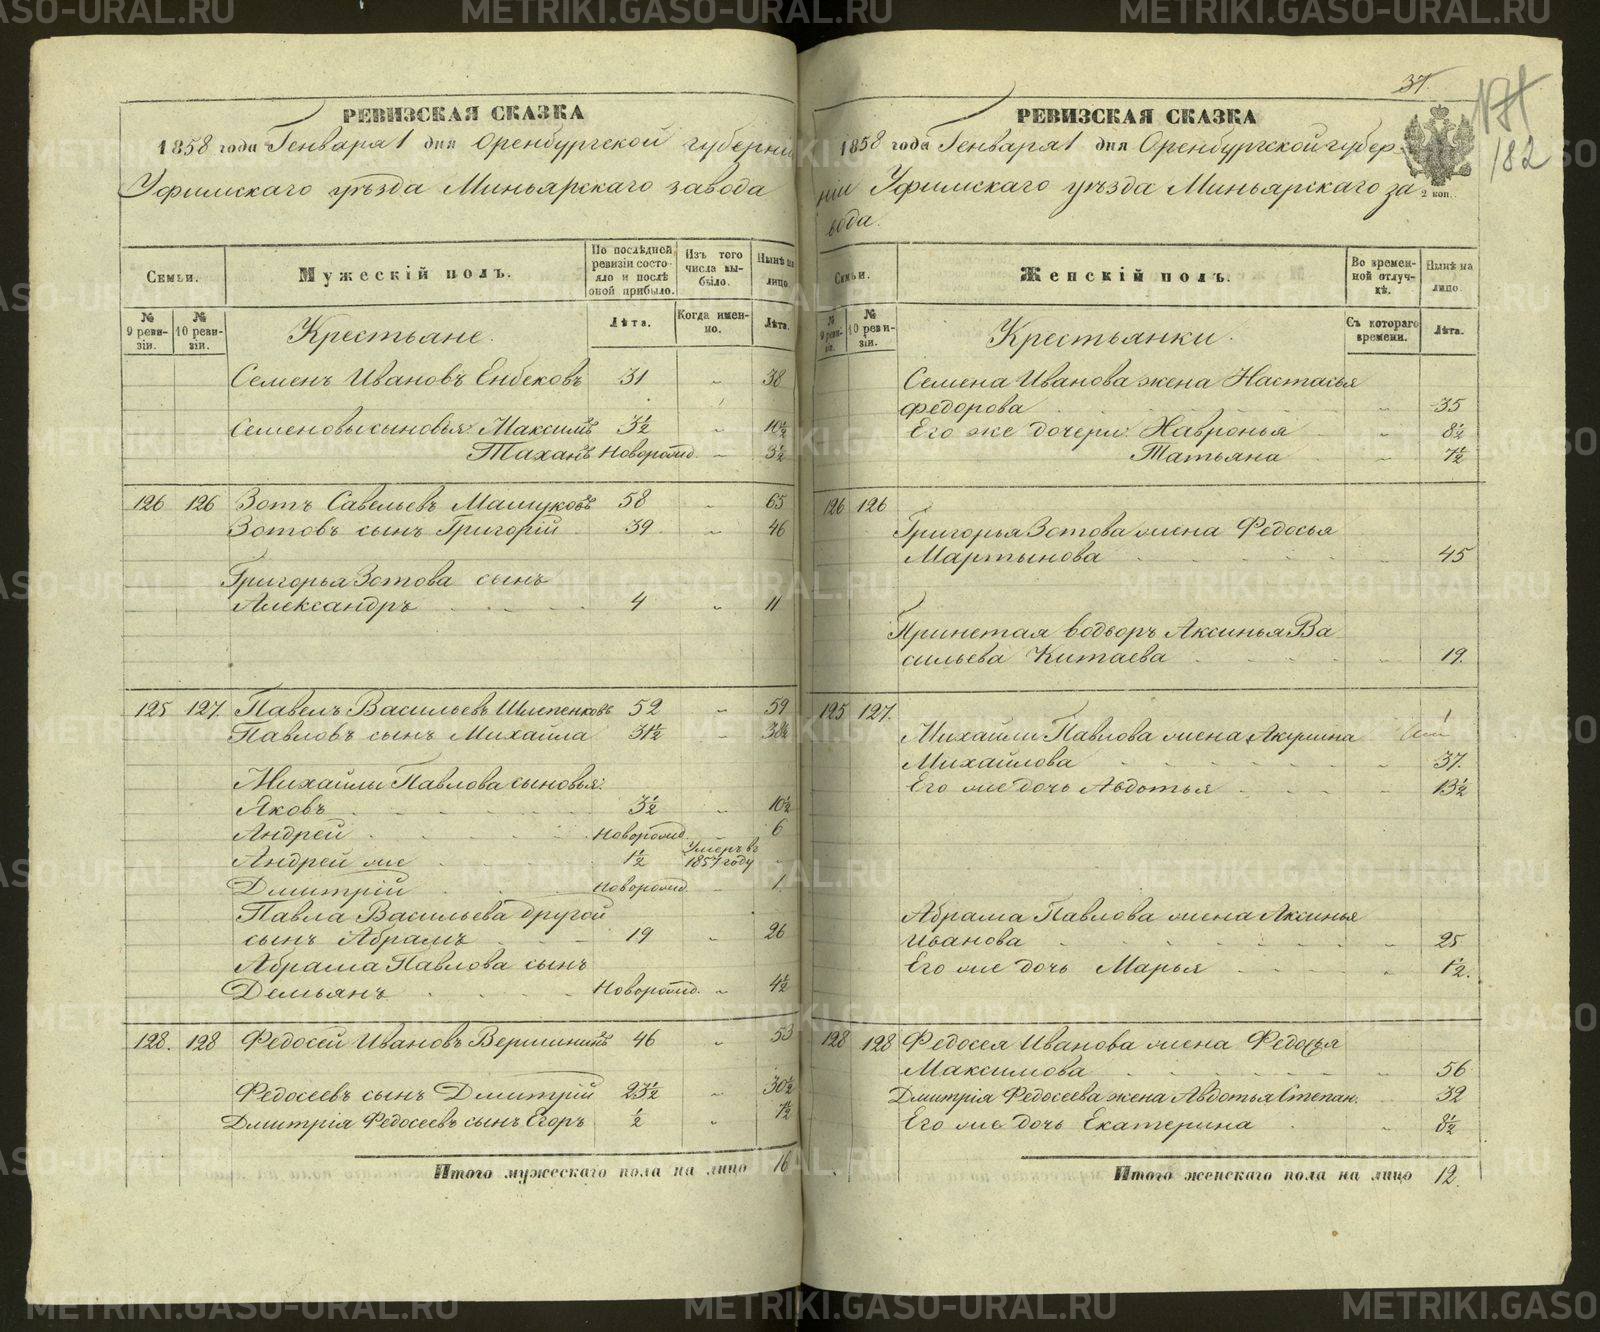 РЕВИЗСКАЯ СКАЗКА
1858 года Генваря 1 дня Оренбургской губерни
Уфимскаго уѣзда Миньярскаго завода
Семьи.
Мужескій полъ.
По послѣдней ревизіи состояло и послѣ оной прибыло.
Изъ того числа выбыло.
Нынѣ на лицо.
№ 9 ревизіи.
№ 10 ревизіи.
Крестьяне.
Лѣта.
Когда именно.
Лѣта.
Семенъ Ивановъ Енбековъ 31 " 38
Семеновы сыновья: Максимъ 3½ " 10½
Новорожд. " 3½
126 126 Зотъ Савельевъ Машуковъ 58 " 65
Зотовъ сынъ Григорій 39 " 46
Григорья Зотова сынъ
Александръ 4 " 11
125 127. Павелъ Васильевъ Шлепенковъ 52 " 59
Павловъ сынъ Михайла 31½ " 38½
Михайлы Павлова сыновья:
Яковъ 3½ " 10½
Андрей Новорожд. " 6
Андрей же 1½ Умеръ въ 1857 году "
Дмитрій Новорожд. " 1
Павла Васильева другой
сынъ Абрамъ 19 " 26
Абрама Павлова сынъ
Демьянъ Новорожд. " 4½
128. 128 Федосей Ивановъ Вершининъ 46 " 53
Федосеевъ сынъ Дмитрій 23½ " 30½
Дмитрія Федосеевъ сынъ Егоръ ½ " 7½
Итого мужескаго пола на лицо 16
37.
182
РЕВИЗСКАЯ СКАЗКА
1858 года Генваря 1 дня Оренбургской губер
ніи Уфимскаго уѣзда Миньярскаго за
вода.
2 коп.
Семьи.
Женскій полъ.
Во временной отлучкѣ.
Нынѣ на лицо.
№ 9 ревизіи.
№ 10 ревизіи.
Крестьянки.
Съ котораго времени.
Лѣта.
Семена Иванова жена Настасья
Федорова " 35
Его же дочери: Хавронья " 8½
Татьяна " 7½
126 126
Григорья Зотова жена Федосья
Мартынова " 45
Принетая водворъ Аксинья Ва
сильева Китаева " 19.
125 127.
Михайлы Павлова жена Акулина
Михайлова " 37.
Его же дочь Авдотья " 13½
Абрама Павлова жена Аксинья
Иванова " 25
Его же дочь Марья " 1½.
128 128 Федосея Иванова жена Федосья
Максимова " 56
Дмитрія Федосеева жена Авдотья Степан. " 32
Его же дочь Екатерина " 8½
Итого женскаго пола на лицо 12.
METRIKI.GASO-URAL.RU